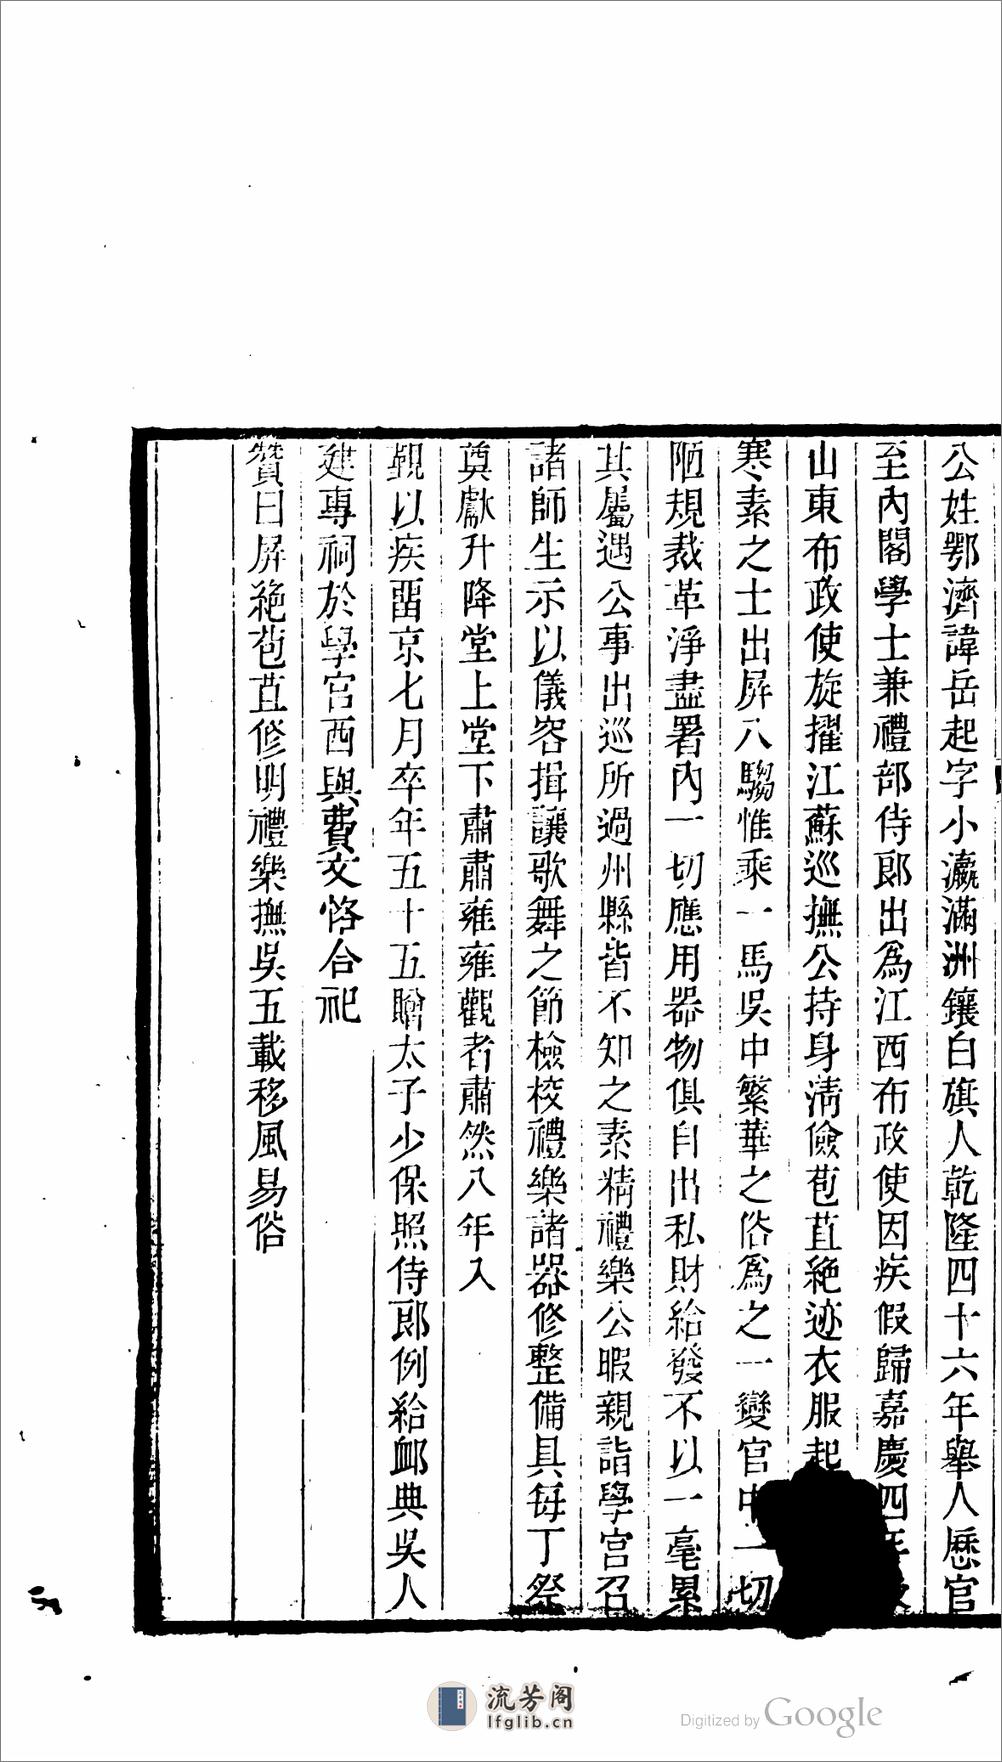 公姓鄂濟諱岳起字小瀛滿洲鑲白旗人乾隆四十六年舉人歷官
至內閣學士兼禮部侍郎出爲江西布政使因疾假歸嘉慶四年
山東布政使旋擢江蘇巡撫公持身清儉苞苴絶迹衣服起
寒素之士出屏八騶惟乘一馬吳中繁華之俗爲之一變官中一切
陋規裁革淨盡署內一切應用器物俱自出私財給發不以一毫累
其屬遇公事出巡所過州縣皆不知之素精禮樂公暇親詣學宮召
諸師生示以儀容揖讓歌舞之節檢校禮樂諸器修整備具每丁祭
奠獻升降堂上堂下肅肅雍雍觀者肅然八年入
覲以疾畱京七月卒年五十五贈太子少保照侍郎例給卹典吳人
建專祠於學宮西與費文恪合祀
贊曰屏絶苞苴修明禮樂撫吳五載移風易俗
流芳阁
lfglib.cn
Digitized by Google